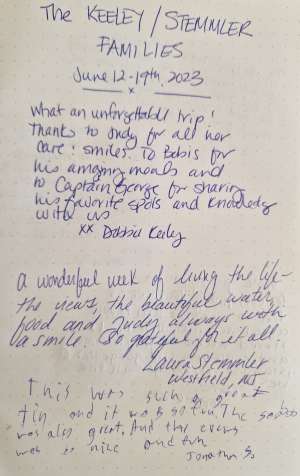 The KEELEY / STEMMLER
FAMILIES
June 12-19th, 2023
x
What an unforgettable trip!
Thanks to Judy for all her
care & smiles. To Babis for
his amazing meals and
to Captain George for sharing
his favorite spots and knowledge
with us
xx Debbie Keeley
A wonderful week of living the life-
the views, the beautiful water,
food and Judy, always with
a smile. So grateful for it all.
Laura Stemmler
Westfield, NJ
This was such a great
and it was so fun. The
was also great. And the
was so nice and fun
Jonathan S.